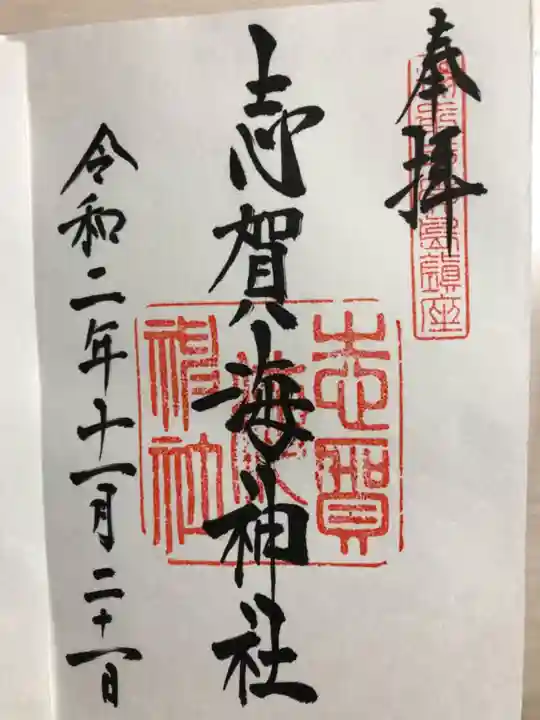 奉拝
志賀海神社
志賀
海
神社
令和二年十一月二十一日